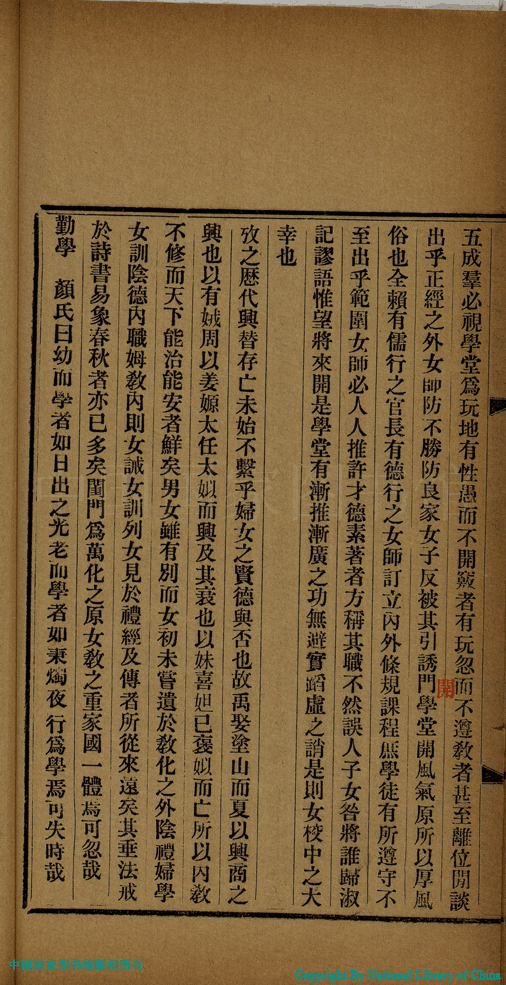 五成羣必視學堂爲玩地有性愚而不開竅者有玩忽而不遵敎者甚至離位閒談
出乎正經之外女師防不勝防良家女子反被其引誘門學堂開風氣原所以厚風
開
俗也全賴有儒行之官長有德行之女師訂立內外條規課程庶學徒有所遵守不
至出乎範圍女師必人人推許才德素著者方稱其職不然誤人子女咎將誰歸淑
記謬語惟望將來開是學堂有漸推漸廣之功無避實蹈虛之誚是則女校中之大
幸也
攷之歷代興替存亡未始不繫乎婦女之賢德與否也故禹娶塗山而夏以興商之
興也以有娀周以姜嫄太任太姒而興及其衰也以妹喜妲己褒姒而亡所以內敎
不修而天下能治能安者鮮矣男女雖有別而女初未嘗遺於敎化之外陰禮婦學
女訓陰德內職姆敎內則女誡女訓列女見於禮經及傳者所從來遠矣其垂法戒
於詩書易象春秋者亦已多矣閨門爲萬化之原女敎之重家國一體焉可忽哉
勤學　顏氏曰幼而學者如日出之光老而學者如秉燭夜行爲學焉可失時哉
中国国家图书馆版权所有
Copyright By National Library of China